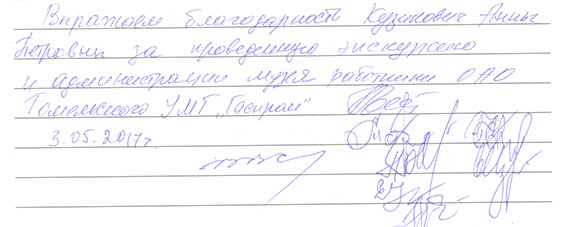 Выражаем благодарность Кузикович Анны
Петровны за проведенную экскурсию
и администрации музея работники ОАО
Гомельского УМГ „Газпром"
3.05.2017г.